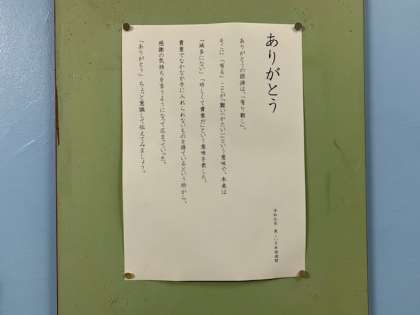 ありがとう
ありがとうの語源は、「有り難し」。
そこに「有る」ことが「難い(かたい)」という意味で、本来は
「滅多にない」「珍しくて貴重だ」という意味を表した。
貴重でなかなか手に入れられないものを得ているという所から、
感謝の気持ちを言うようになって広まっていった。
「ありがとう」ちょっと意識して伝えてみましょう。